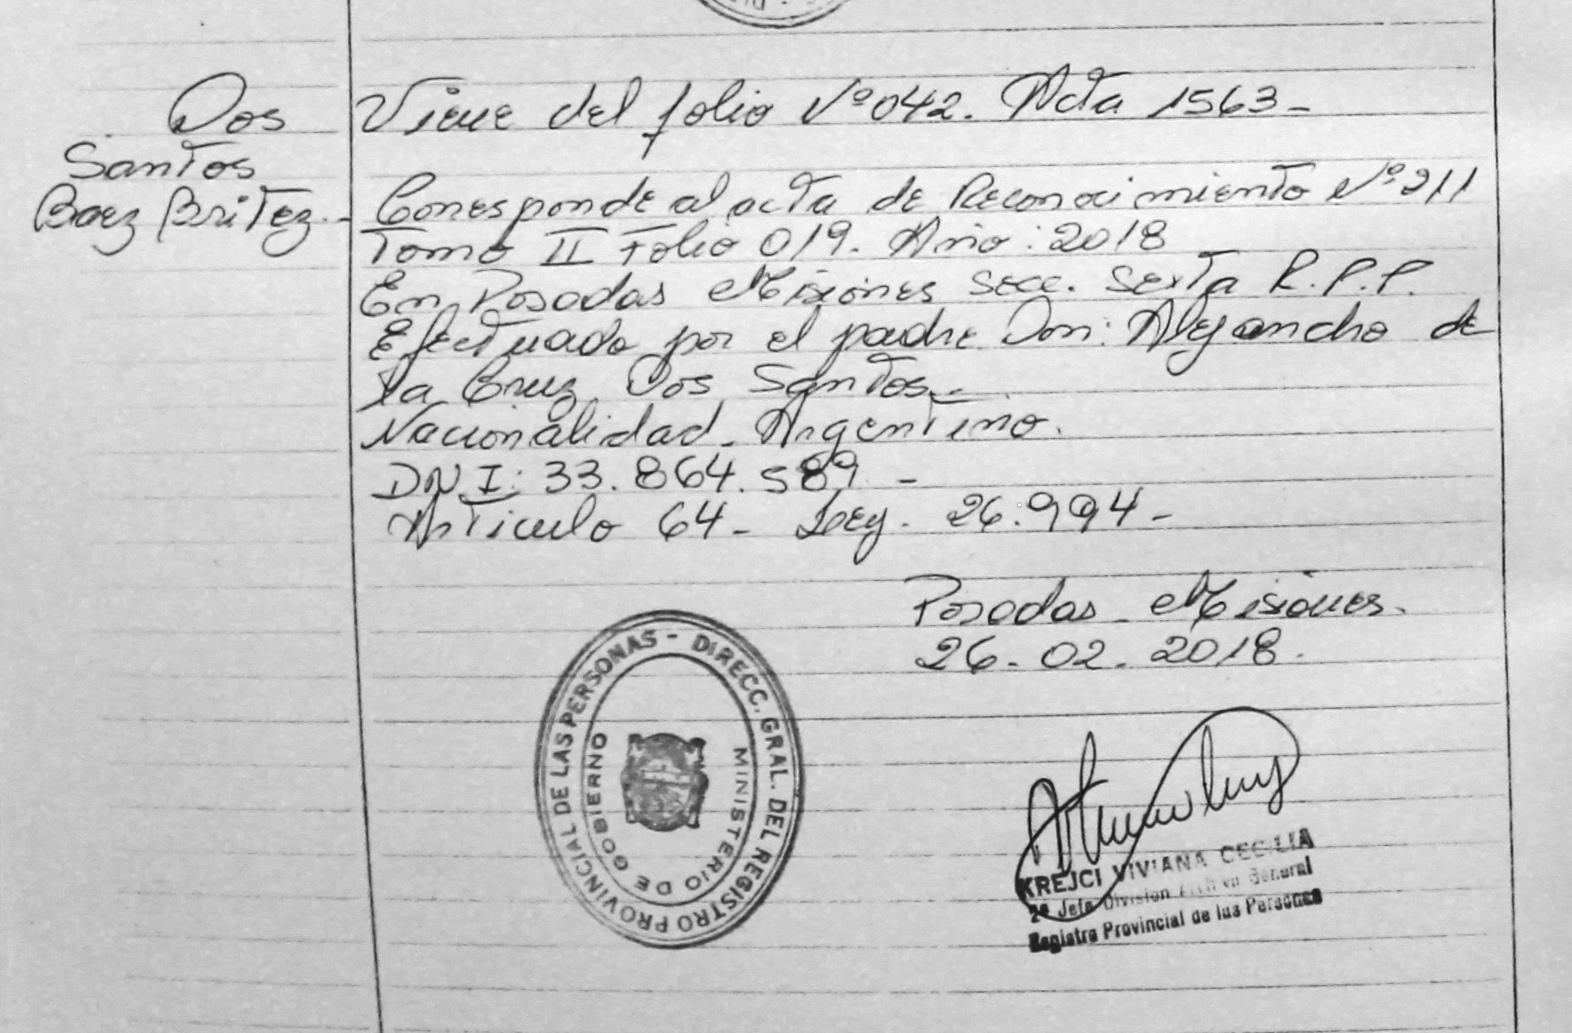 Dos
Santos
Baez Britez.-
Viene del folio Nº 042. Acta 1563-
Corresponde al acta de Reconocimiento Nº 211
Tomo II Folio 019. Año: 2018
En Posadas Misiones Secc. Sexta R.P.P.
Efectuado por el padre Don: Alejandro de
la Cruz Dos Santos.-
Nacionalidad - Argentino.
DNI: 33.864.589 -
Artículo 64 - Ley. 26.994-
Posadas - Misiones.
26-02-2018.
DIRECC. GRAL. DEL REGISTRO PROVINCIAL DE LAS PERSONAS -
MINISTERIO DE GOBIERNO
KREJCI VIVIANA CECILIA
2º Jefe División Archivo General
Registro Provincial de las Personas